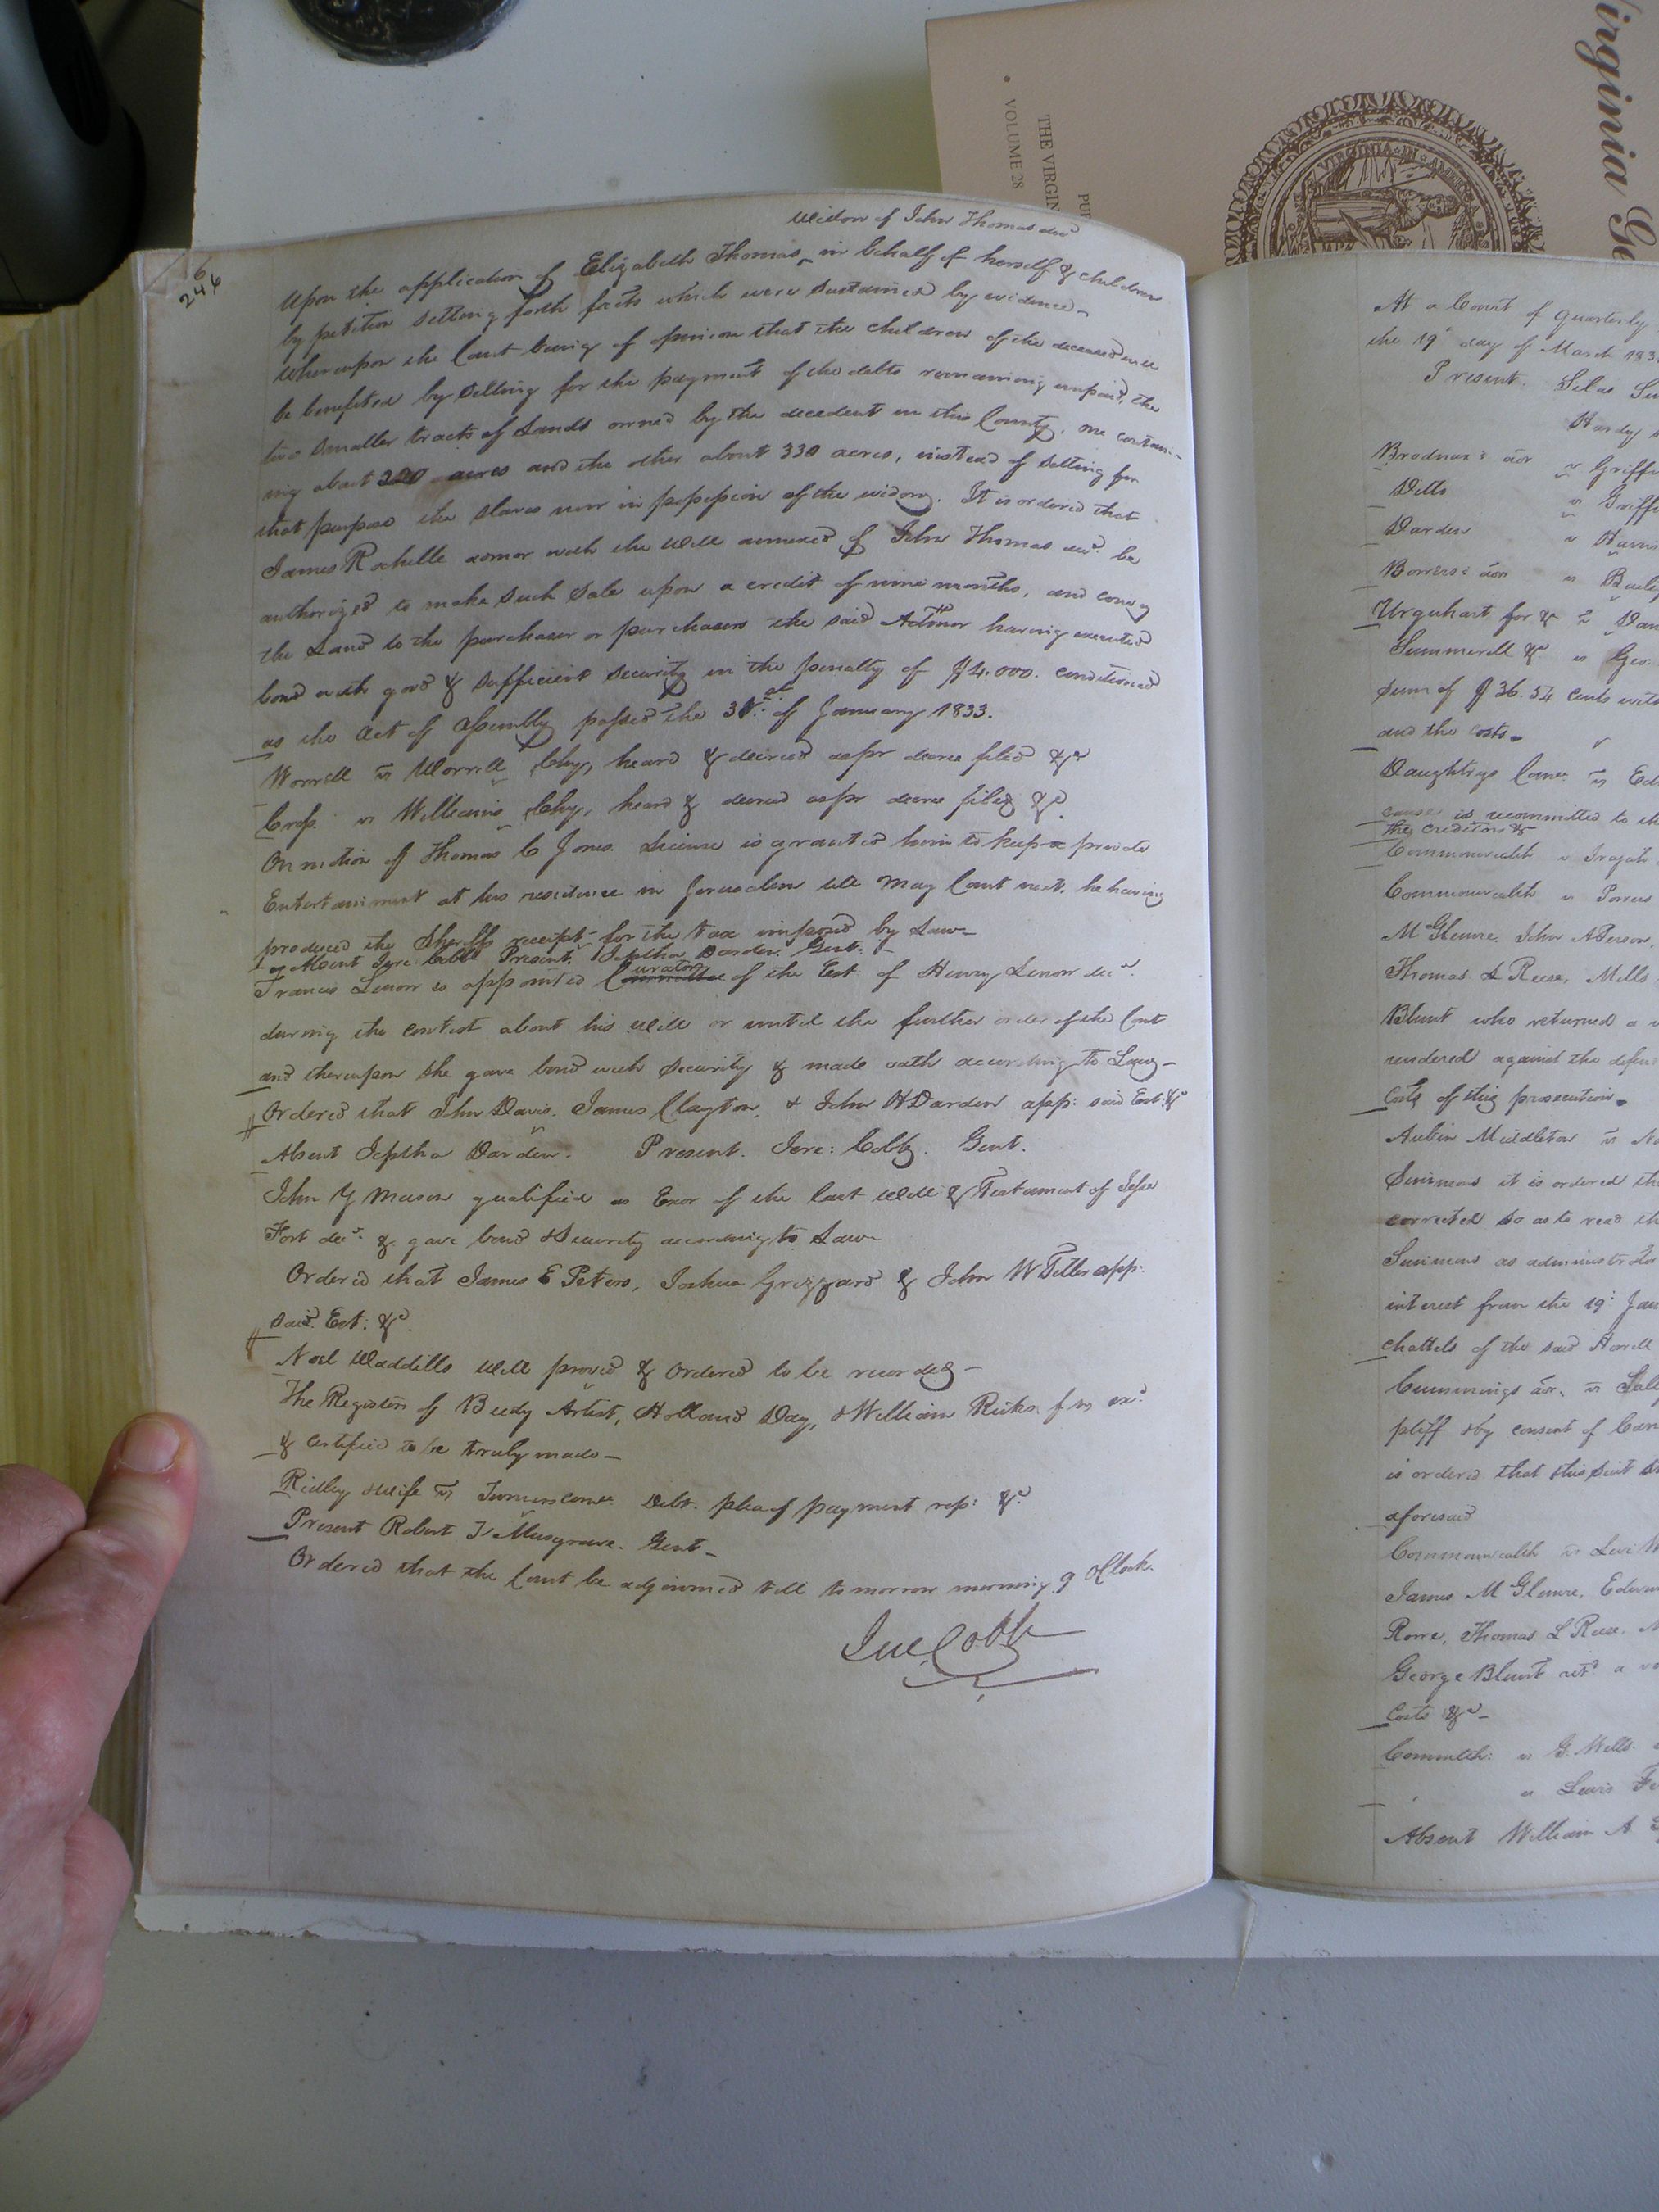 Virginia Ge
THE VIRGIN
• VOLUME 28
PU
VIRGINIA IN AME
6
246
widow of John Thomas decd
Upon the application of Elizabeth Thomas ^ in behalf of herself & children
by petition setting forth facts which were sustained by evidence
whereupon the Court being of opinion that the children of the deceased will
be benefited by selling for the payment of the debts remaining unpaid, the
two smaller tracts of Lands owned by the decedent in this County, one contain-
ing about 320 acres and the other about 330 acres, instead of selling for
that purpose the slaves now in possession of the widow. It is ordered that
James Rochelle admor with the Will annexed of John Thomas decd. be
authorized to make such sale upon a credit of nine months, and convey
the Land to the purchaser or purchasers the said Admor having executed
bond with good & sufficient security in the penalty of $4.000. conditioned
as the Act of Assembly passed the 31st of January 1833.
Worrell vs Worrell Chy, heard & decreed as pr decree filed &c
vs Williams Chy, heard & decreed as pr decree filed &c
On motion of Thomas C Jones. License is granted him to keep a private
Entertainment at his residence in Jerusalem till May Court next. he having
produced the Sheriffs receipt for the tax imposed by Law
Absent Jere. Cobb Present. Jeptha Darden. Gent.
Francis Lenow is appointed Curator of the Est. of Henry Lenow decd.
during the contest about his Will or until the further order of the Court
and thereupon she gave bond with security & made oath according to Law -
Ordered that John Davis. James Clayton, & John H Darden app: said Est: &c
Absent Jeptha Darden. Present. Jere: Cobb. Gent.
John Y Mason qualified as Exor of the last Will & Testament of Jesse
Fort decd. & gave bond & Security according to Law
Ordered that James E Peters, Joshua Griggard & John W Teller app:
said. Est: &c.
Noel Waddills Will proved & Ordered to be recorded -
The Registers of Beedy Artist, Holland Day, & William Ricks f ns exd
& Certified to be truly made -
Ridley & wife vs Turners Debt. plea of payment rep: &c
Present Robert T Musgrave. Gent -
Ordered that the Court be adjourned till to morrow morning 9 OClock
Jere Cobb
At a Court of Quarterly
the 19th day of March 183
Present. Silas Su
Hardy
Brodnax's admr vs Griffi
Dells vs Griffi
Darden vs Harris
admr vs Baile
Urquhart for &c vs Dan
Summerell &c vs Geo.
Sum of $36.54 cents with
and the costs
Daughtrys vs Ed
cause is recommitted to the
the creditors &
Commonwealth vs
Commonwealth vs Powers
McGlemre. John A Person,
Thomas L Reese, Mills
Blunt who returned a v
rendered against the defend
costs of this prosecution
Aubin Middleton vs No
Simmons it is ordered th
corrected so as to read th
Simmons as administrator
interest from the 19: Jan
chattels of the said Howell
Cummings admr. vs
pltff & by consent of
is ordered that this suit st
aforesaid
Commonwealth vs Levi W
James McGlemre, Edwin
Rowe, Thomas L Reese, M
George Blunt retd a ve
Costs &c -
Commlth: vs G. Wells.
" vs Lewis
Absent William A